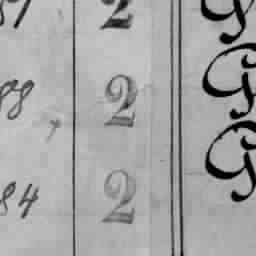 2 G
88 2 G
84 2 G